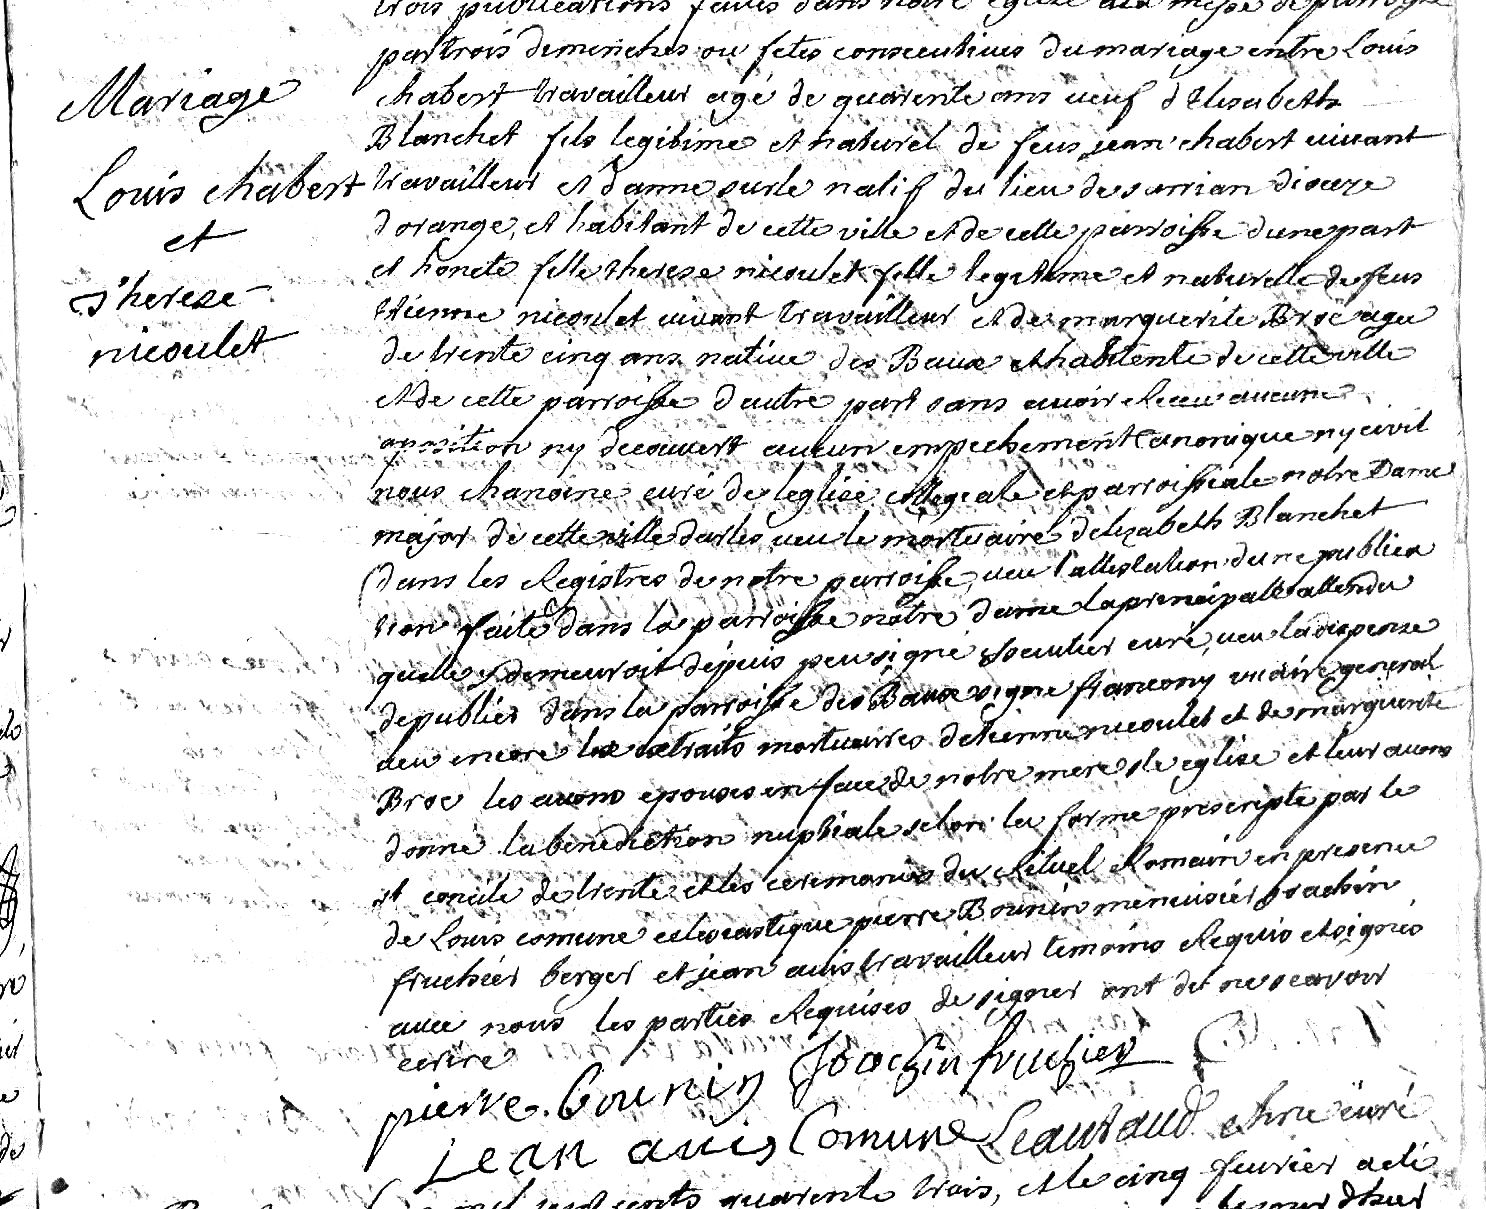 trois publications faites dans notre eglise a la messe de parroisse
par trois dimenches ou fetes consecutives du mariage entre Louis
Mariage
chabert travailleur agé de quarente ans veuf d'Elisabeth
Blanchet fils legitime et naturel de feus jean chabert vivant
Louis chabert
travailleur et d'anne surle natif du lieu de sarrian dioceze
et
d'orange, et habitant de cette ville et de cette parroisse d'une part
et honete fille therese nicoulet fille legitime et naturelle de feus
Therese
Etienne nicoulet vivant travailleur et de marguerite Broc agee
nicoulet
de trente cinq ans native des Baux et habitente de cette ville
et de cette parroisse d'autre part sans avoir Receu aucune
opposition ny decouvert aucun empechement Canonique ny civil
nous chanoine curé de leglise collegeale et parroissiale notre Dame
major de cette ville d'arles veu le mortuaire d'elizabeth Blanchet
dans les Registres de notre parroisse, veu l'attestation d'une publica
tion faite dans la parroisse notre dame la principalle attendu
quelle y demeuroit depuis peu signé curé, veu la dispense
de publier dans la parroisse des Baux signe francony vicaire general
veu encore les extraits mortuaires d'etienne nicoulet et de marguerite
Broc les avons epouses en face de notre mere ste eglise et leur avons
donné la benediction nuptiale selon la forme prescripte par le
st concile de trente et les ceremonies du Rituel Romain en presence
de Louis comune eclesiastique pierre Bounin menuisier joachin
fruchier berger et jean avis travailleur temoins Requis et signés
avec nous les parties Requises de signer ont dit ne scavoir
ecrire
pierre Bounin Joachin fruchier
jean avis Comune Leautaud chne curé
mil sept cents quarente trois, et le cinq fevrier a été